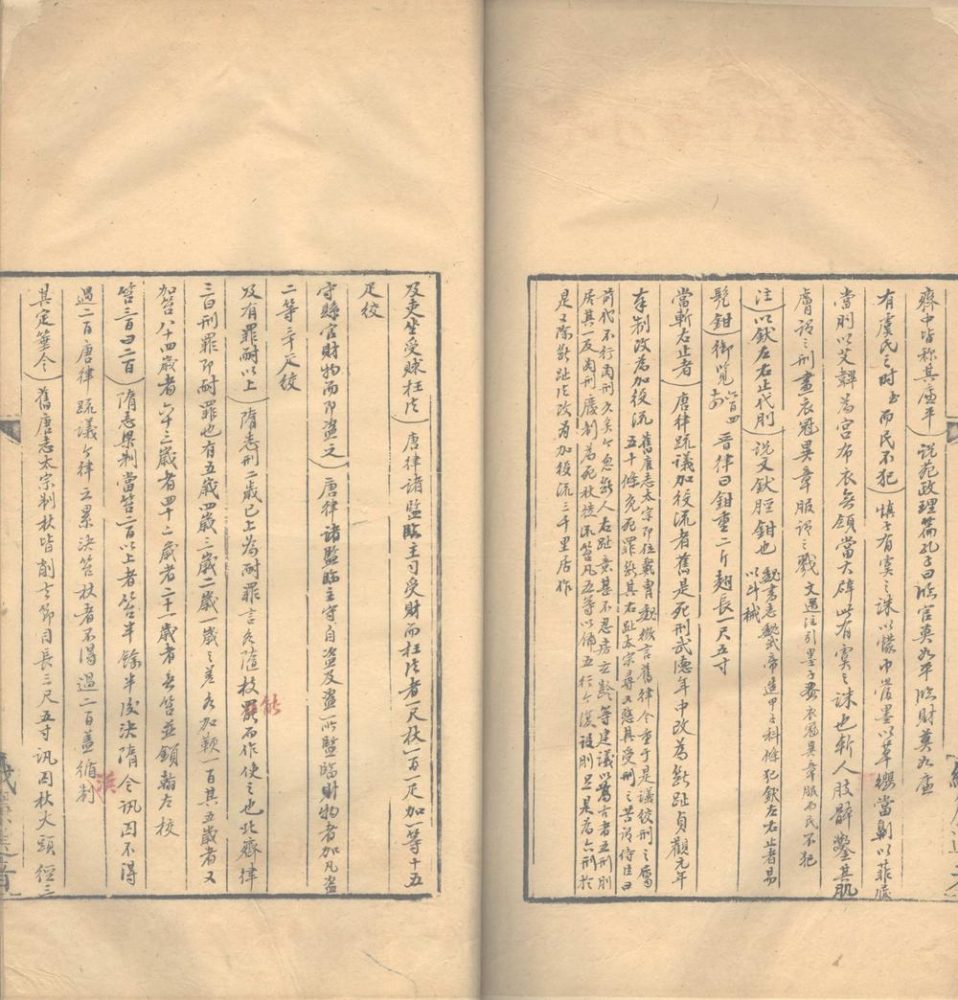 齊中皆称其廉平）說苑政理篇孔子曰臨官莫如平臨財莫如廉
有虞氏之时 而民不犯）慎子有虞之誅以幪巾當墨以草纓當劓以菲履
當刖以艾韠當宮布衣无領當大辟此有虞之誅也斬人肢體鑿其肌
膚謂之刑畫衣冠異章服謂之戮 文選注引墨子畫衣冠異章服而民不犯
注）以釱左右止代刖）說文釱脛鉗也 魏書志魏武帝造甲子科條犯釱左右止者易
以斗械
髡鉗）御覽六百四 晉律曰鉗重二斤翹長一尺五寸
當斬右止者）唐律疏議加役流者舊是死刑武德年中改為斷趾貞觀元年
奉制改為加役流 舊唐志太宗即位 魏徵言舊律令重于是議絞刑之屬
五十條免死罪斷其右趾太宗尋又愍其受刑之苦謂侍臣曰
前代不行肉刑久矣今忽斷人右趾意甚不忍 玄齡等建議以為古者五刑刖
居其一及肉刑廢制為死杖徒流笞凡五等以備五刑今復設刖足是為六刑於
是又除斷趾法改為加役流三千里居作
及吏坐受賕枉法）唐律諸監臨主司受財而枉法者一尺杖一百一疋加一等十五
疋絞
守縣官財物而即盜之）唐律諸監臨主守自盜及盜所監臨財物者加凡盜
二等三十疋絞
及有罪耐以上）隋志刑二歲已上為耐罪言各隨技能而作使之也北齊律
三曰刑罪即耐罪也有五歲四歲三歲二歲一歲之差各加鞭一百其五歲者又
加笞八十四歲者六十三歲者四十二歲者二十一歲者无笞並鎖輸左校
笞三百曰二百）隋志梁制當笞二百以上者笞半餘半後決隋令訊囚不得
過二百唐律疏議今律云累決笞杖者不得過二百蓋循漢制
其定箠令）舊唐志太宗制杖皆削去節目長三尺五寸訊囚杖大頭徑三